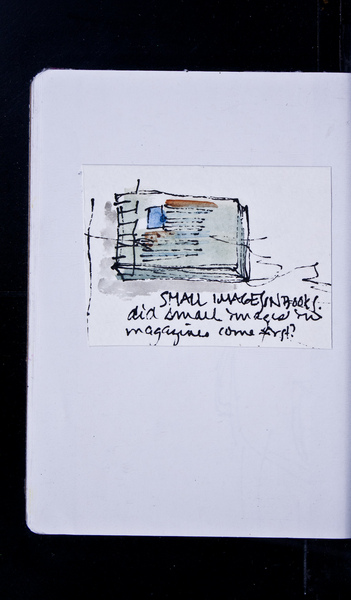 SMALL IMAGES IN BOOKS.
did small images in
magazines come first?